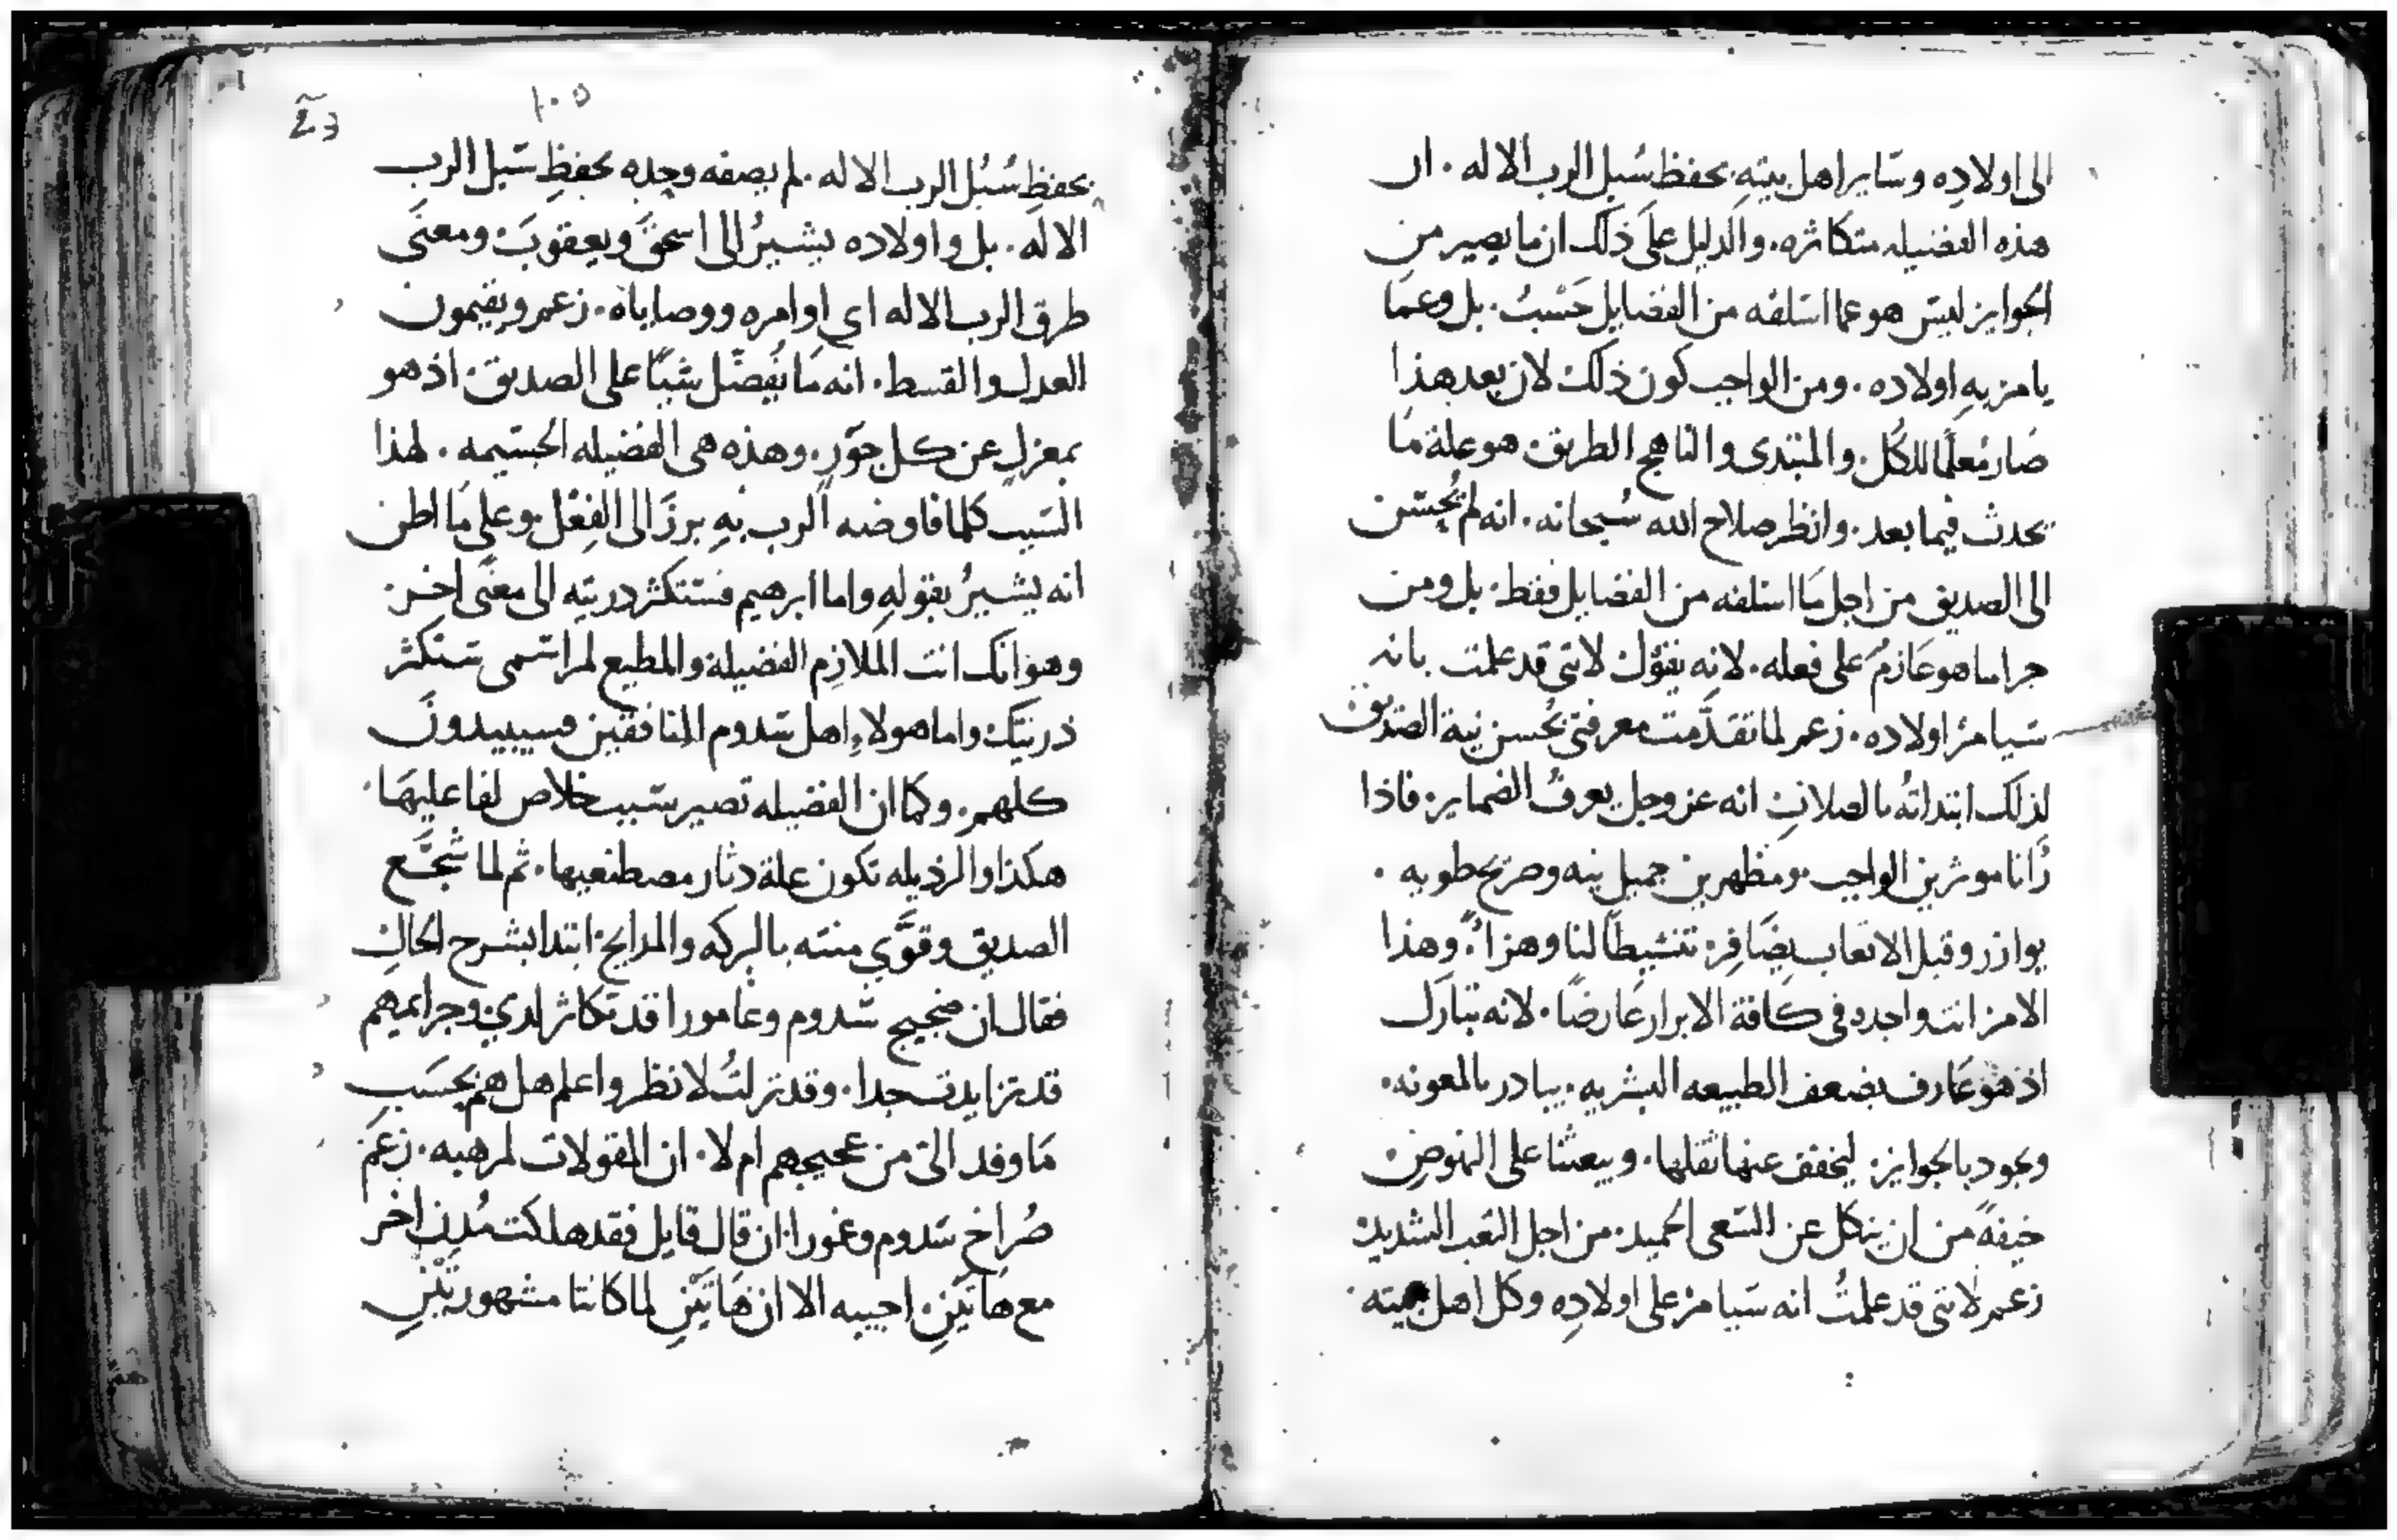 الى اولادِه وسَايراهل بيته بحفظ سُبل الرب الاله . ان
هذه الفضيله متكاثره . والدليل على ذلك ان ما يصير من
الجوايز ليسَ هو عما اسَلفه من الفضايل حَسْبُ . بل وعما
يامر به اولاده . ومن الواجب كون ذلك لان بعد هذا
صَار مُعلمًا للكل . والمبتدى والناهج الطريق هو علة مَا
يحدث فيما بعد . وانظر صلاح الله سُبحانه . انه لم يُحسّن
الى الصديق من اجل مَا اسلفه من الفضايل فقط . بل ومن
جرا ما هو عَازمُ على فعله . لانه يقول لانى قد علمت بانه
سَيامرُ اولاده . زعم لما تقدَّمت معرفتى بحُسن نية الصديق
لذلك ابتداتهُ بالصلات انه عز وجل يعرفُ الضماير . فاذا
رُانا موثرين الواجب ومظهرين جميل نيه وصريح طويه .
يوازر وقبل الاتعاب يضَافر تنشيطًا لنا وهزاً . وهذا
الامر انت واجده فى كافة الابرار عَارضًا . لانه تبارك
اذ هو عَارف بضعف الطبيعه البشريه . يبادر بالمعونه .
ويجود بالجوايز . ليخفف عنها ثقلها . ويبعثنا على النهوض
خيفةً من ان ينكل عن السَعى الحميد . من اجل التعب الشديد
زعم لانى قد علمتُ انه سَيامرُ على اولادِه وكل اهل بيته .
١٠٥
بحفظِ سُبُل الرب الاله . لم يصفه وحِده بحفظِ سَبل الرب
الاله . بل واولاده يشيرُ الى اسحقَ ويعقوبَ . ومعنَى
طرق الرب الاله اى اوامره ووصاياه . زعم ويقيمون
العدل والقسط . انه مَا يُفضّل شيًا على الصديق . اذ هو
بمعزلٍ عن كل جَورٍ . وهذه هى الفضيله الجسَيمه . لهذا
السَبب كلما فاوضه الرب بهِ برزَ الى الفِعْل . وعلى مَا اظن
انه يشيرُ بقولهِ واما ابرهيم فستتكثر دريته الى معنًى اخر .
وهو انك انت الملازِم الفضيله والمطيع لمراسَمى ستكثر
ذريتك واما هولاء اهل سَدوم المنافقين فسيبيدونَ
كلهم . وكما ان الفضيله تصير سَبب خلاص لفاعليهَا .
هكذا والرذيله تكون علة دثار مصطنعيها . ثم لما شجَّع
الصديق وقوَّى منته بالبركه والمدايح . ابتدا بشرح الحال
فقال ان ضجيج سَدوم وعامورا قد تكاثر لدى وجرايمهم
قد تزايدت جدا . وقد نزلتُ لانظر واعلم هل هم بحسَبِ
مَا وفد الىّ من عجيجهم ام لا . ان المقولات لمرهبه . زعمَ
صُراخ سَدوم وعمورا . ان قال قايل فقد هلكت مُدن اخر
مع هَاتَين . اجيبه الا ان هَاتَينِ لما كانتا مشهورتَينِ